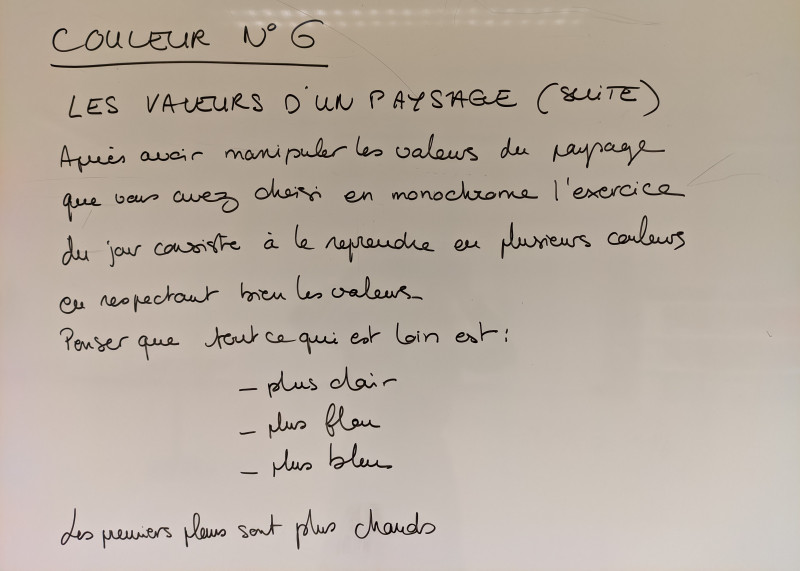 COULEUR N° 6
LES VALEURS D'UN PAYSAGE (SUITE)
Après avoir manipuler les valeurs du paysage
que vous avez choisi en monochrome l'exercice
du jour consiste à le reprendre en plusieurs couleurs
en respectant bien les valeurs
Penser que tout ce qui est loin est :
- plus clair
- plus flou
- plus bleu
Les premiers plans sont plus chauds